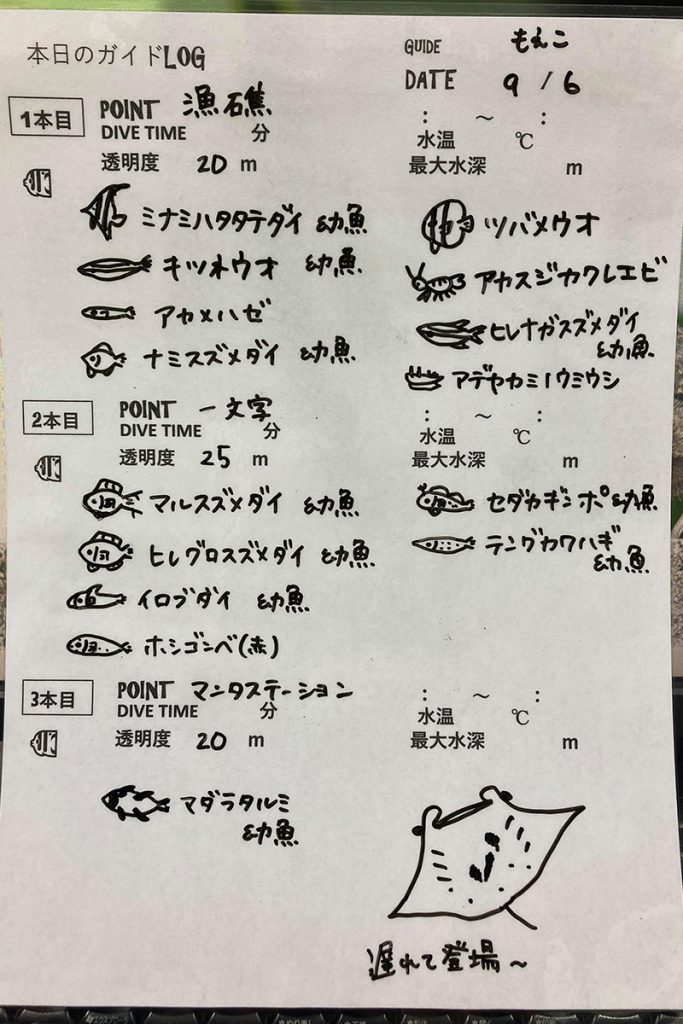 本日のガイドLOG
GUIDE もえこ
DATE 9 / 6
1本目
POINT 漁礁
DIVE TIME 分
: ～ :
水温 ℃
透明度 20 m
最大水深 m
ミナミハタタテダイ 幼魚
キツネウオ 幼魚
アカメハゼ
ナミスズメダイ 幼魚
ツバメウオ
アカスジカクレエビ
ヒレナガスズメダイ
幼魚
アデヤカミノウミウシ
2本目
POINT 一文字
DIVE TIME 分
: ～ :
水温 ℃
透明度 25 m
最大水深 m
マルスズメダイ 幼魚
ヒレグロスズメダイ 幼魚
イロブダイ 幼魚
ホシゴンベ(赤)
セダカギンポ幼魚
テングカワハギ
幼魚
3本目
POINT マンタステーション
DIVE TIME 分
: ～ :
水温 ℃
透明度 20 m
最大水深 m
マダラタルミ
幼魚
遅れて登場～